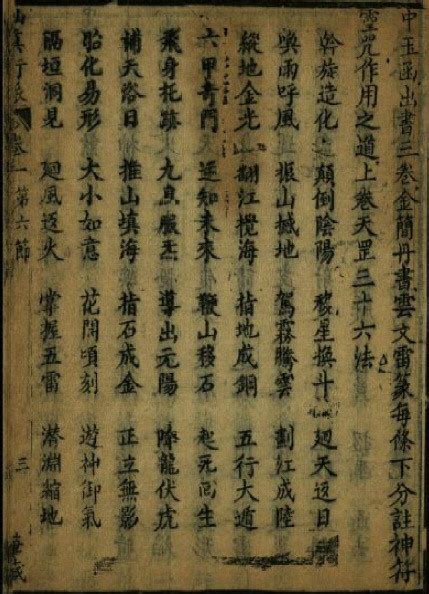 中玉函出書三卷金簡丹書雲文雷篆每條下分註神符
靈咒作用之道上卷天罡三十六法
斡旋造化 顛倒陰陽 移星換斗 廻天返日
喚雨呼風 振山撼地 駕霧騰雲 劃江成陸
縱地金光 翻江攪海 指地成鋼 五行大遁
六甲奇門 逆知未來 鞭山移石 起死回生
飛身托跡 九息服炁 導出元陽 降龍伏虎
補天浴日 推山填海 指石成金 正立無影
胎化易形 大小如意 花開頃刻 遊神御氣
隔垣洞見 廻風返火 掌握五雷 潛淵縮地
真衍派 卷一第六節 三